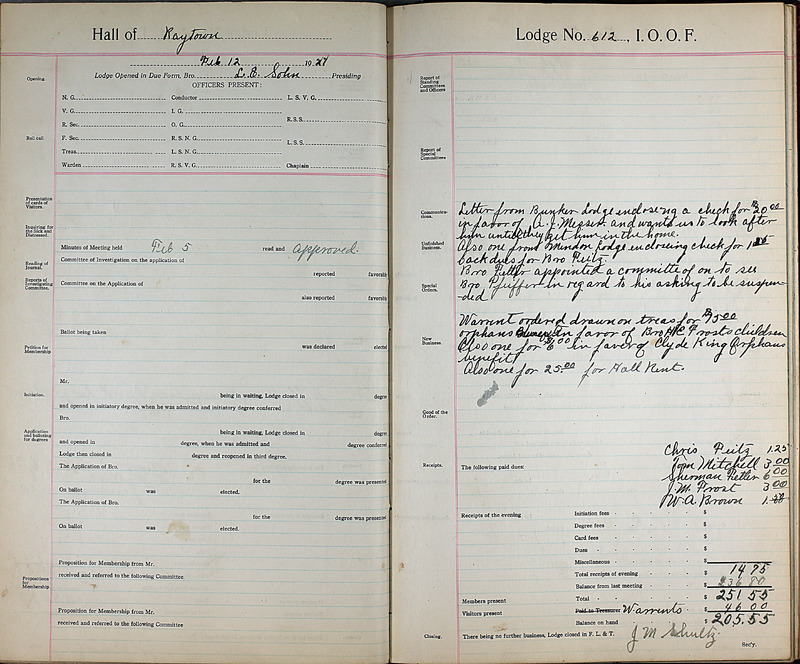 Hall of Raytown
Feb 12 1924
Opening.
Lodge Opened in Due Form, Bro. L. B. Sohn Presiding
OFFICERS PRESENT:
N. G. Conductor L. S. V. G.
V. G. I. G.
R. S. S.
R. Sec. O. G.
Roll call.
F. Sec. R. S. N. G.
L. S. S.
Treas. L. S. N. G.
Warden R. S. V. G. Chaplain
Presentation of cards of Visitors.
Inquiring for the Sick and Distressed.
Minutes of Meeting held Feb 5 read and approved.
Reading of Journal.
Committee of Investigation on the application of
reported favorabl
Reports of Investigating Committee.
Committee on the Application of
also reported favorabl
Ballot being taken
Petition for Membership
was declared elected
Mr.
Initiation.
being in waiting, Lodge closed in degree
and opened in initiatory degree, when he was admitted and initiatory degree conferred
Bro.
Application and balloting for degrees
being in waiting, Lodge closed in degree
and opened in degree, when he was admitted and degree conferred
Lodge then closed in degree and reopened in third degree.
The Application of Bro.
for the degree was presented
On ballot was elected.
The Application of Bro.
for the degree was presented
On ballot was elected.
Proposition for Membership from Mr.
Propositions for Membership
received and referred to the following Committee
Proposition for Membership from Mr.
received and referred to the following Committee
Lodge No. 612, I. O. O. F.
Report of Standing Committees and Officers
Report of Special Committees
Communications.
Letter from Bunker Lodge enclosing a check for $20.00
in favor of A. J. Messer. and wants us to look after
him until they get him in the home.
Unfinished Business.
Also one from Mendon Lodge enclosing check for 1.25
back dues for Bro Peitz.
Bro Fetter appointed a committee of on to see
Special Orders.
Bro Pfuffer in regard to his asking to be suspen-
-ded
Warrent ordered drawn on treas for $15.00
orphans in favor of Bro H C Frosts children
New Business.
Also one for $6.00 in favor of Clyde King Orphans
benefit
Also one for 25.00 for Hall Rent.
Good of the Order.
Receipts.
The following paid dues:
Chris Peitz 1.25
Tom Mitchell 3.00
Sherman Fetter 6.00
J. M. Frost 3.00
W. A. Brown 1.50
Receipts of the evening
Initiation fees $
Degree fees $
Card fees $
Dues $
Miscellaneous $
Total receipts of evening $ 14 75
Balance from last meeting $ 236 80
Members present
Total $ 251 55
Visitors present
Paid to Treasurer Warrents $ 46 00
Balance on hand $ 205.55
Closing.
There being no further business, Lodge closed in F. L. & T.
J M Shultz
Sec'y.